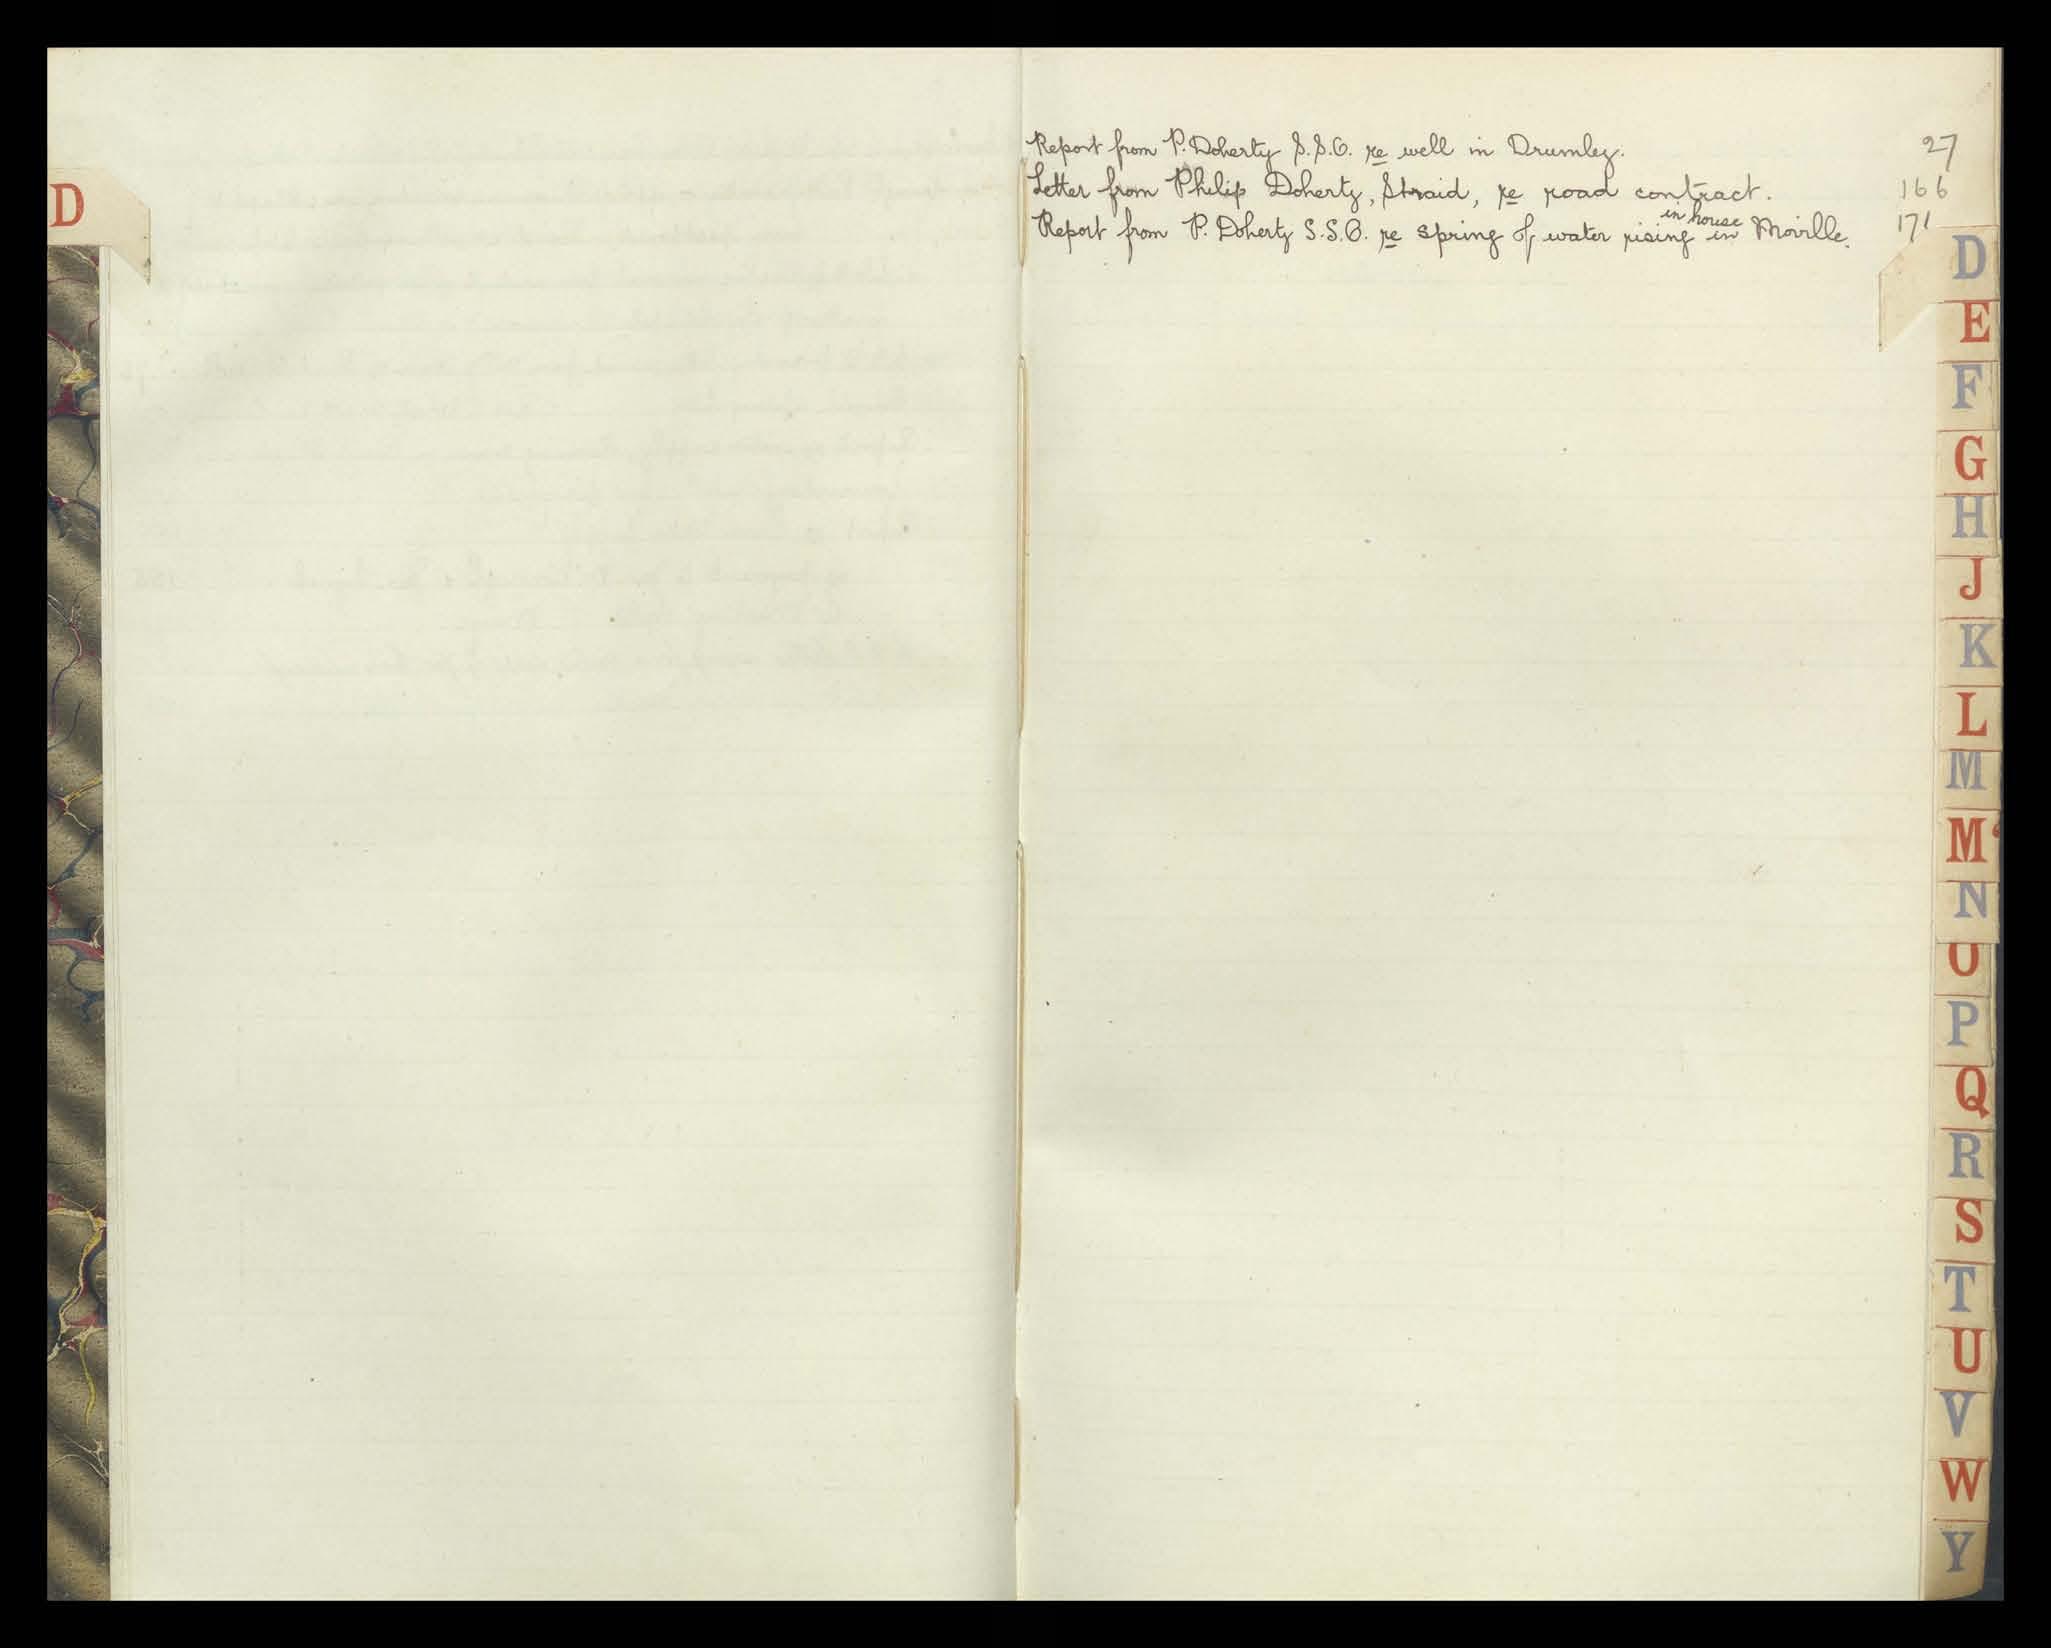 D
Report from P. Doherty S.S.O. re well in Drumley. 27
Letter from Philip Doherty, Straid, re road contract. 166
in house
Report from P. Doherty S.S.O. re spring of water rising in Moville. 171
D
E
F
G
H
J
K
L
M
M‘
N
O
P
Q
R
S
T
U
V
W
Y